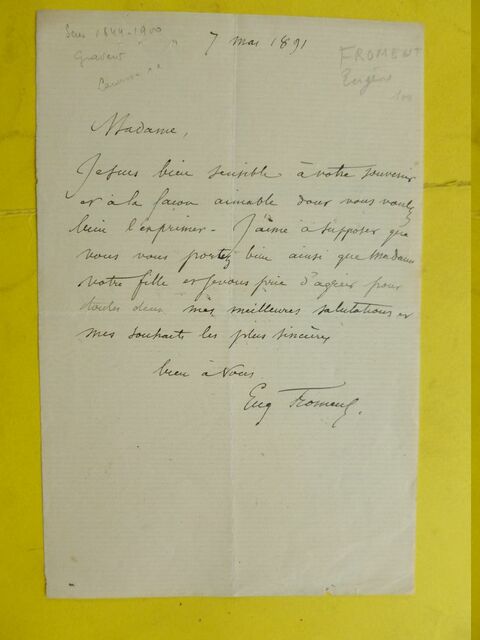 Sens 1844-1900
Graveur
7 mai 1891
FROMENT
Eugène
100
Madame,
Je suis bien sensible à votre souvenir
et à la façon aimable dont vous voulez
bien l'exprimer - J'aime à supposer que
vous vous portez bien ainsi que Madame
votre fille et je vous prie d'agréer pour
toutes deux mes meilleures salutations et
mes souhaits les plus sincères
bien à vous
Eug Froment.